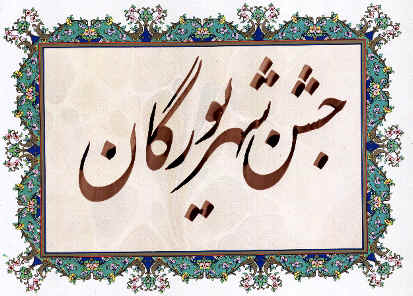 جشن شهریورگان